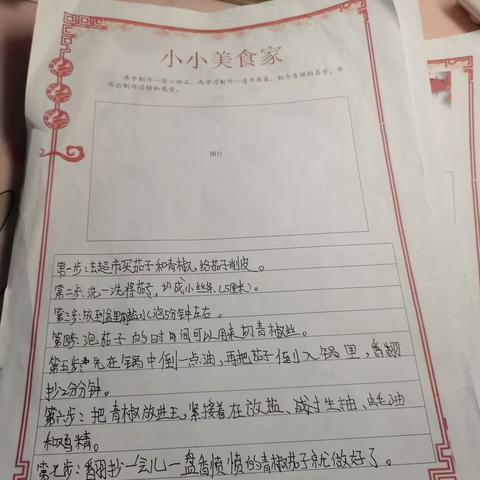 小小美食家
亲手制作一道小甜品，或学习制作一道年夜菜，取个吉祥的名字，并
写出制作过程和感受。
图片
第一步：去超市买茄子和青椒，给茄子削皮。
第二步：洗一洗将茄子，切成小丝条（5厘米）。
第三步：放到盆里用盐水泡5分钟左右。
第四步：泡茄子的时间可以用来切青椒丝。
第五步：先在锅中倒一点油，再把茄子倒入锅里，翻
抄2分分钟。
第六步：把青椒放进去，紧接着在放盐、生抽、蚝油
和鸡精。
第七步：翻抄一会儿一盘香喷喷的青椒茄子就做好了。